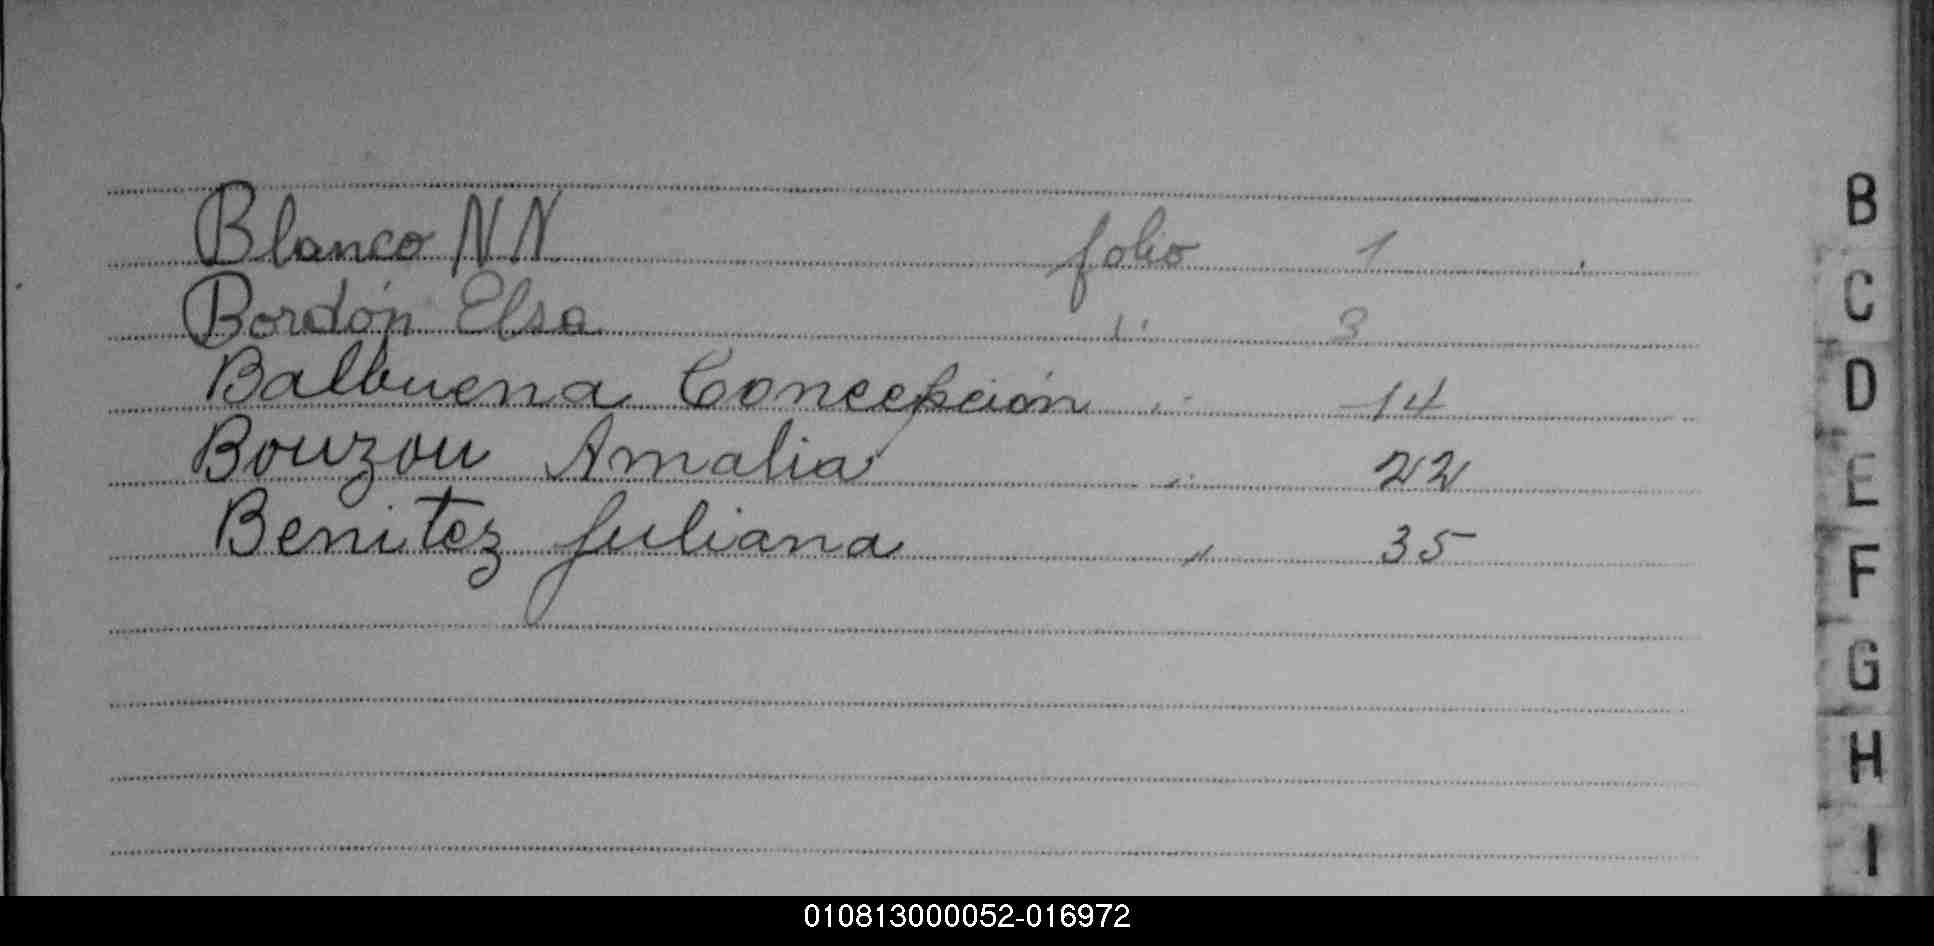 Blanco NN folio 1
Bordón Elsa " 3
Balbuena Concepción " 14
Bouzou Amalia " 22
Benitez Juliana " 35
B
C
D
E
F
G
H
I
010813000052-016972